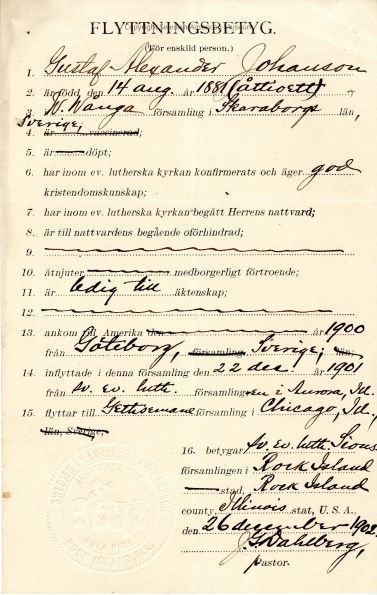 FLYTTNINGSBETYG.
(För enskild person.)
1. Gustaf Alexander Johanson
2. är född den 14 aug. år 1881 (åttioett)
3. N. Vånga församling i Skaraborgs län,
Sverige,
4. är vaccinerad;
5. är döpt;
6. har inom ev. lutherska kyrkan konfirmerats och äger god
kristendomskunskap;
7. har inom ev. lutherska kyrkan begått Herrens nattvard;
8. är till nattvardens begående oförhindrad;
9.
10. åtnjuter medborgerligt förtroende;
11. är ledig till äktenskap;
12.
13. ankom till Amerika den år 1900
från Göteborg, församling Sverige, län,
14. inflyttade i denna församling den 22 des. 1901
från sv. ev. luth. församlingen i Aurora, Ill.
15. flyttar till Gethsemane församling i Chicago, Ill.,
län, Sverige,
16. betygar sv. ev. luth. Zions
församlingen i Rock Island
stad, Rock Island
county, Illinois stat, U. S. A.,
den 26 december 1902.
J. G. Dahlberg,
Pastor.